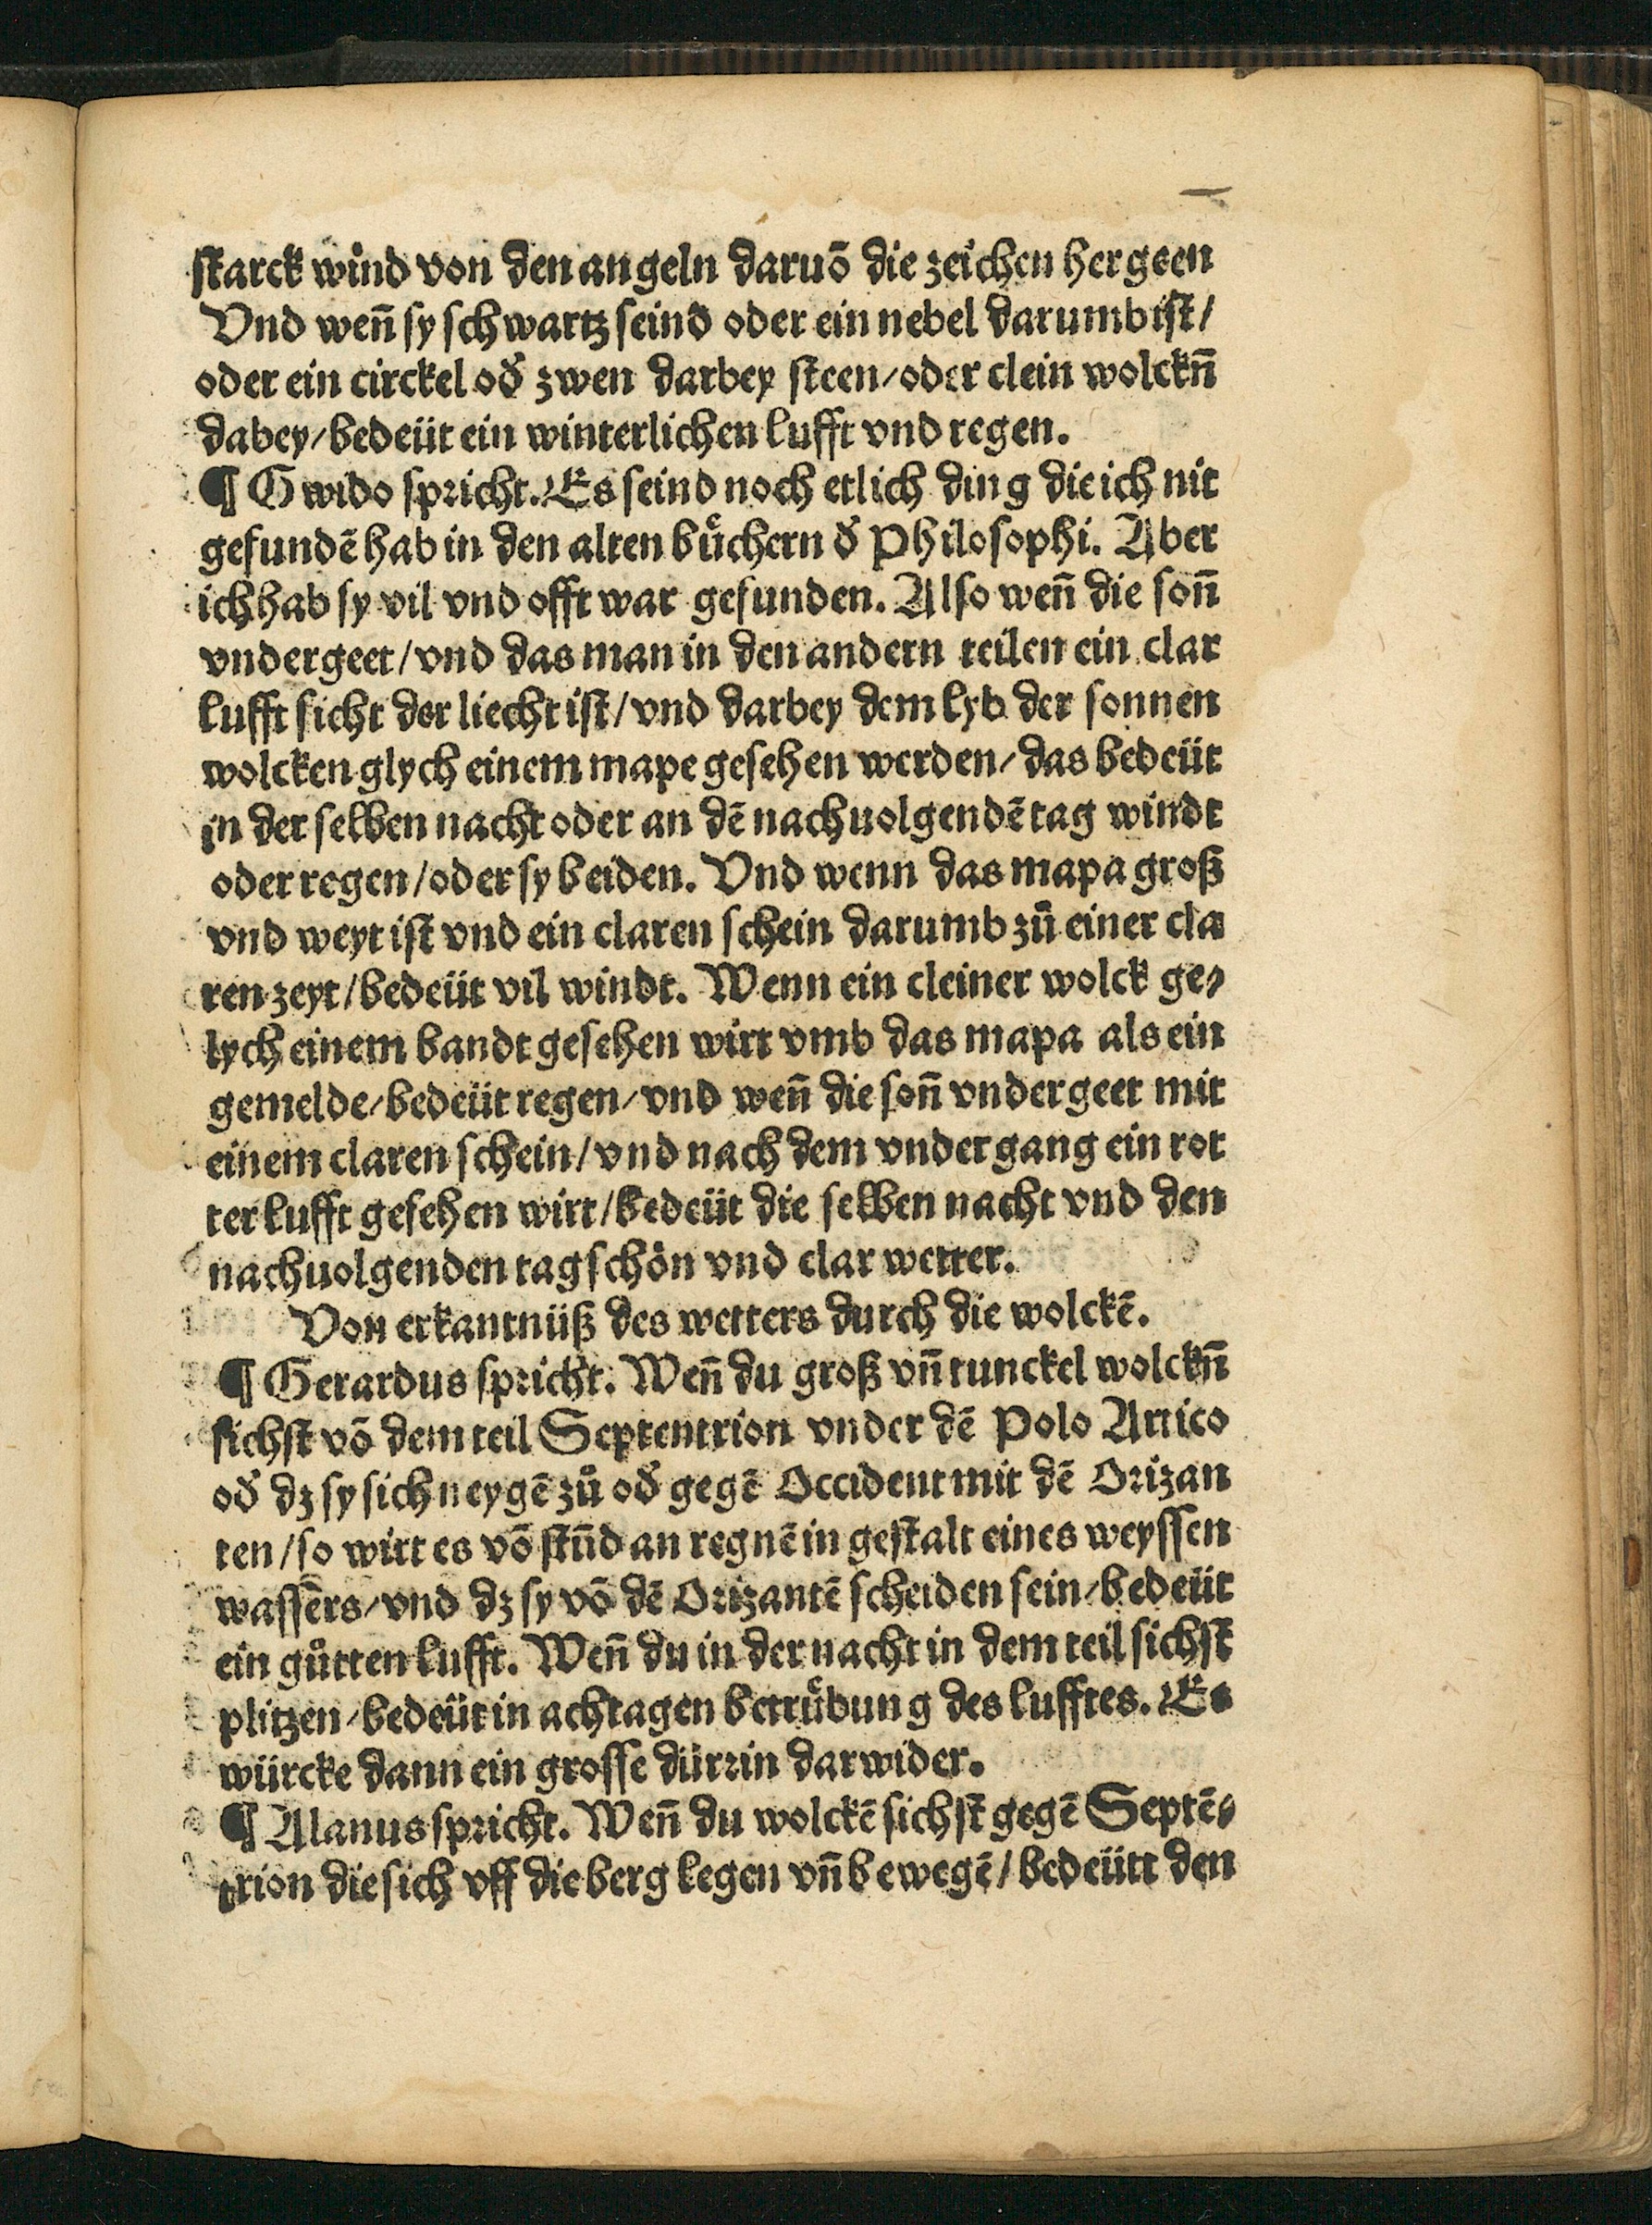 starck wind von den angeln daruō die zeichen her geen
Vnd weñ sy schwartz seind oder ein nebel darumb ist/
oder ein circkel od̄ zwen darbey steen/oder clein wolckn̄
dabey/bedeüt ein winterlichen lufft vnd regen.
¶ Gwido spricht. Es seind noch etlich ding die ich nit
gefundē hab in den alten bůchern d̄ Philosophi. Aber
ich hab sy vil vnd offt war gefunden. Also weñ die soñ
vndergeet/vnd das man in den andern teilen ein clar
lufft sicht der liecht ist/vnd darbey dem lyb der sonnen
wolcken glych einem mape gesehen werden/das bedeüt
in der selben nacht oder an dē nachuolgendē tag windt
oder regen/oder sy beiden. Vnd wenn das mapa groß
vnd weyt ist vnd ein claren schein darumb zů einer cla
ren zeyt/bedeüt vil windt. Wenn ein cleiner wolck ge⸗
lych einem bandt gesehen wirt vmb das mapa als ein
gemelde/bedeüt regen/vnd weñ die soñ vndergeet mit
einem claren schein/vnd nach dem vndergang ein rot
ter lufft gesehen wirt/bedeüt die selben nacht vnd den
nachuolgenden tag schön vnd clar wetter.
Von erkantnüß des wetters durch die wolckē.
¶ Gerardus spricht. Weñ du groß vñ tunckel wolckn̄
sichst vō dem teil Septentrion vnder dē Polo Artico
od̄ dz sy sich neygē zů od̄ gegē Occident mit dē Orizan
ten/so wirt es vō stūd an regnē in gestalt eines weyssen
wassers/vnd dz sy vō dē Orizantē scheiden sein/bedeüt
ein gůtten lufft. Weñ du in der nacht in dem teil sichst
plitzen/bedeüt in achtagen betrůbung des lufftes. Es
würcke dann ein grosse dürrin darwider.
¶ Alanus spricht. Weñ du wolckē sichst gegē Septē⸗
trion die sich vff die berg legen vñ bewegē/bedeütt den